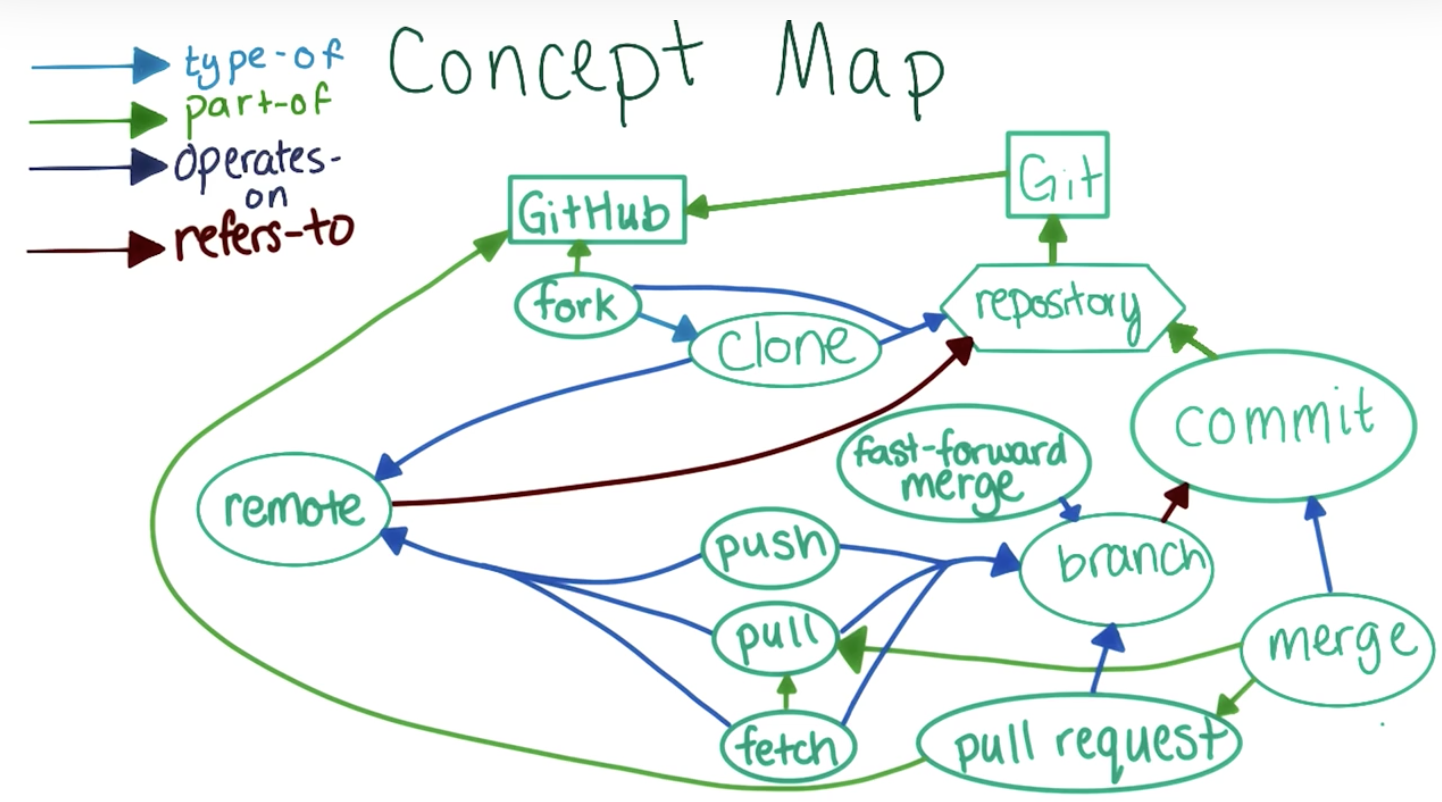 type-of
Concept Map
part-of
operates-
on
refers-to
GitHub
Git
fork
clone
repository
commit
fast-forward
merge
remote
push
branch
pull
merge
fetch
pull request